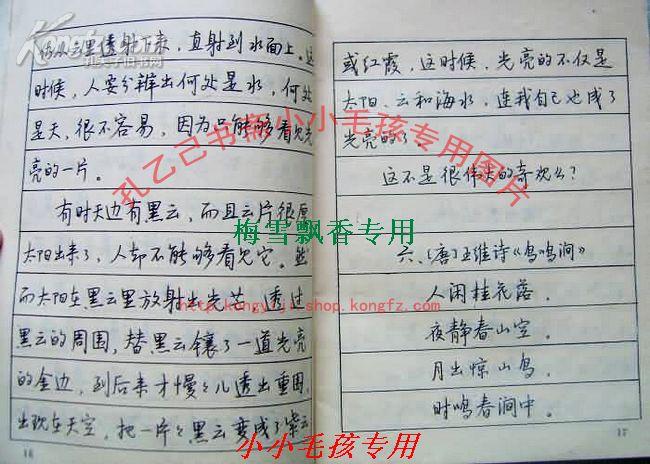 你从云里透射下来，直射到水面上。这
时候，人要分辨出何处是水，何处
是天，很不容易，因为只能够看见光
亮的一片。
有时天边有黑云，而且云片很厚
太阳出来了，人却不能够看见它。然
而太阳在黑云里放射出光芒，透过
黑云的周围，替黑云镶了一道光亮
的金边，到后来才慢々儿透出重围，
出现在天空，把一片々黑云变成了紫云
16
或红霞，这时候，光亮的不仅是
太阳、云和海水，连我自己也成了
光亮的了。
这不是很伟大的奇观么？
六、〔唐〕王维诗《鸟鸣涧》
人闲桂花落，
夜静春山空。
月出惊山鸟，
时鸣春涧中。
17
孔乙己书斋小小毛孩专用图片
梅雪飘香专用
http://kongyiji-shop.kongfz.com
小小毛孩专用